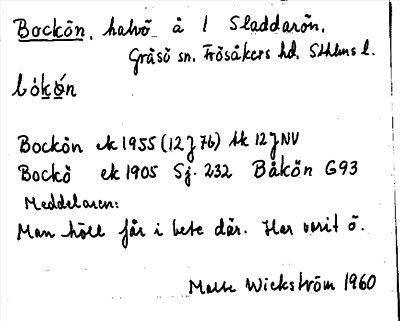 Bockön, halvö å / Sladdarön,
Gräsö sn. Frösåkers hd, Sthlms l.
bókǿn
Bockön ek 1955 (12 J 7b) tk 12 J NV
Bockö ek 1905 Sj. 232 Båkön G93
Meddelaren:
Man höll får i bete där. Har varit ö.
Matts Wickström 1960